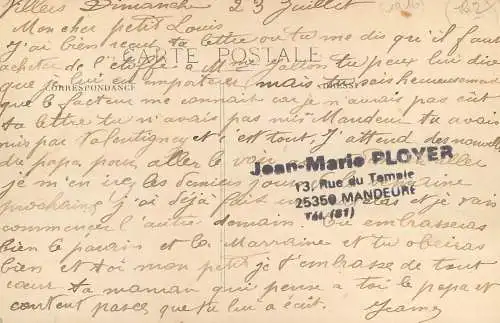 Villers Dimanche 23 Juillet
(1916)
Mon cher petit Louis
J'ai bien reçu ta lettre ou tu me dis qu'il faut
CARTE POSTALE
acheter de l' à Mme tu peux lui dire
que je lui en mais tu sais heureusement
CORRESPONDANCE
ADRESSE
que le facteur me connait car je n'avais pas eut
ta lettre tu n'avais pas mis Mandeure tu avais
mis par Valentigney et c'est tout. J'attend des nouvelles
de papa pour aller le voir
Jean-Marie PLOYER
13, Rue du Temple
25350 MANDEURE
Tél. (81)
je m'en irez les derniers jours de la semaine
prochaine j'ai déjà fait un et je vais
commencer l'autre demain. Tu embrasseras
bien le parrin et la Marraine et tu obeiras
bien et toi mon petit je t'embrasse de tout
cœur ta maman qui pense a toi le papa et
content parce que tu lui a écit.
Jeanne